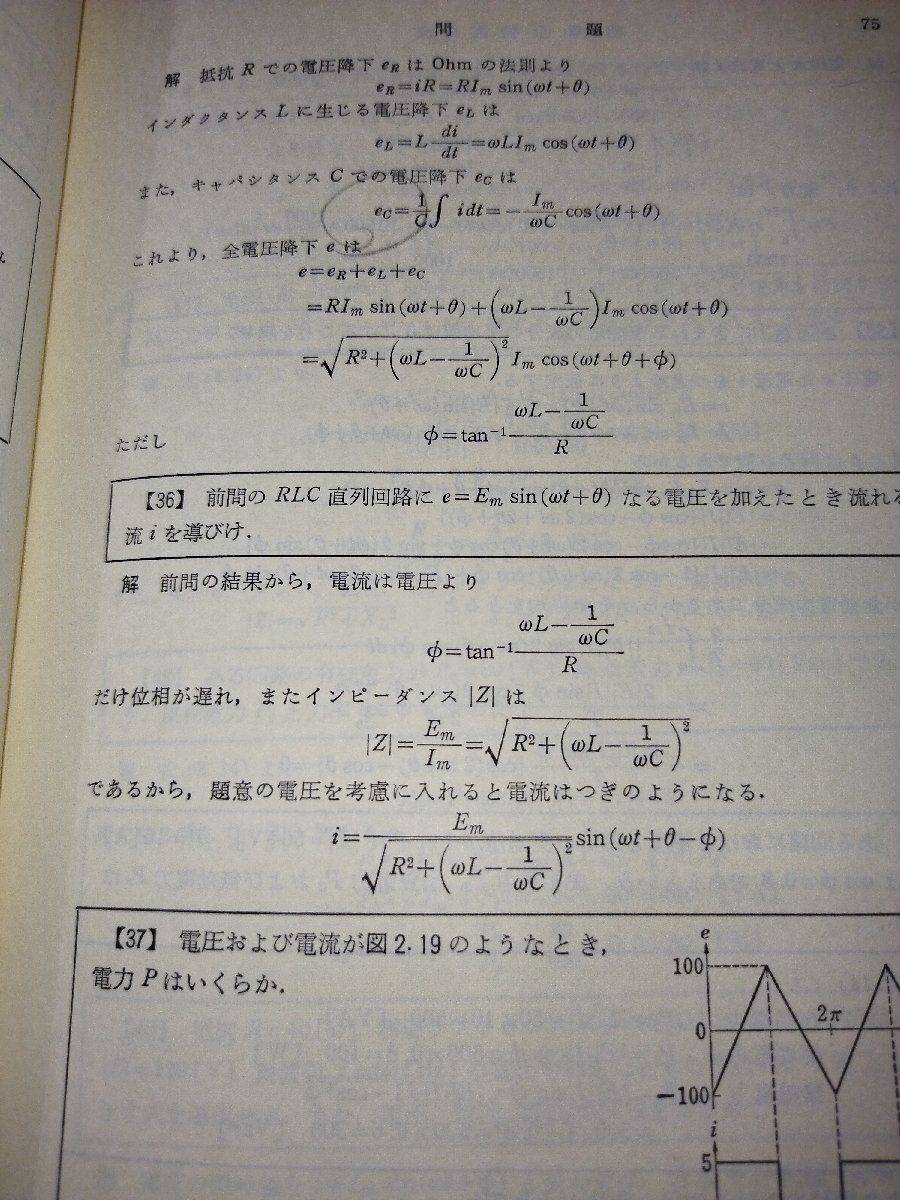 問 題 75
解 抵抗 R での電圧降下 e_R は Ohm の法則より
e_R=iR=RI_m sin(ωt+θ)
インダクタンス L に生じる電圧降下 e_L は
e_L=L di/dt=ωLI_m cos(ωt+θ)
また，キャパシタンス C での電圧降下 e_C は
e_C=1/C∫ idt=−I_m/ωC cos(ωt+θ)
これより，全電圧降下 e は
e=e_R+e_L+e_C
=RI_m sin(ωt+θ)+(ωL−1/ωC)I_m cos(ωt+θ)
=√(R²+(ωL−1/ωC)²) I_m cos(ωt+θ+φ)
ただし φ=tan⁻¹ (ωL−1/ωC)/R
【36】 前問の RLC 直列回路に e=E_m sin(ωt+θ) なる電圧を加えたとき流れる
流 i を導びけ．
解 前問の結果から，電流は電圧より
φ=tan⁻¹ (ωL−1/ωC)/R
だけ位相が遅れ，またインピーダンス |Z| は
|Z|=E_m/I_m=√(R²+(ωL−1/ωC)²)
であるから，題意の電圧を考慮に入れると電流はつぎのようになる．
i=E_m/√(R²+(ωL−1/ωC)²) sin(ωt+θ−φ)
【37】 電圧および電流が図2.19のようなとき，
電力 P はいくらか．
e
100
0
2π
−100
i
5